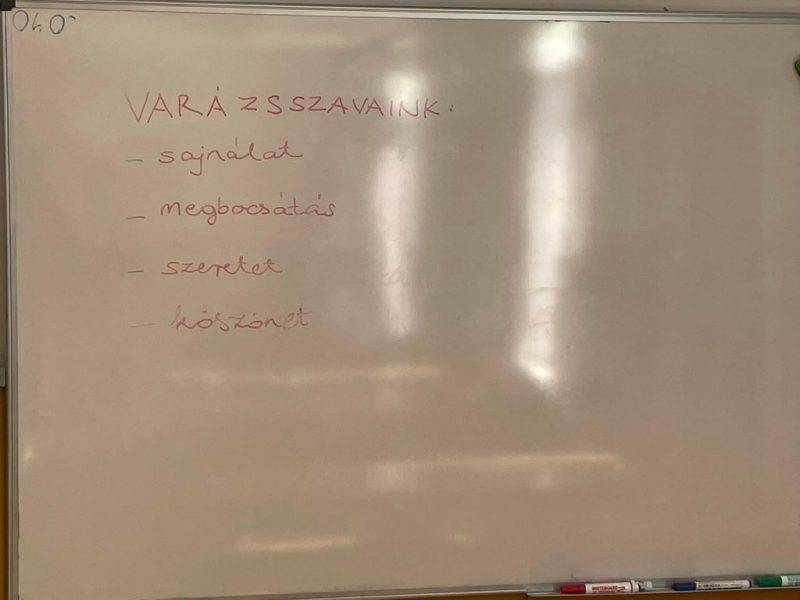 VARÁZSSZAVAINK:
- sajnálat
- megbocsátás
- szeretet
- köszönet